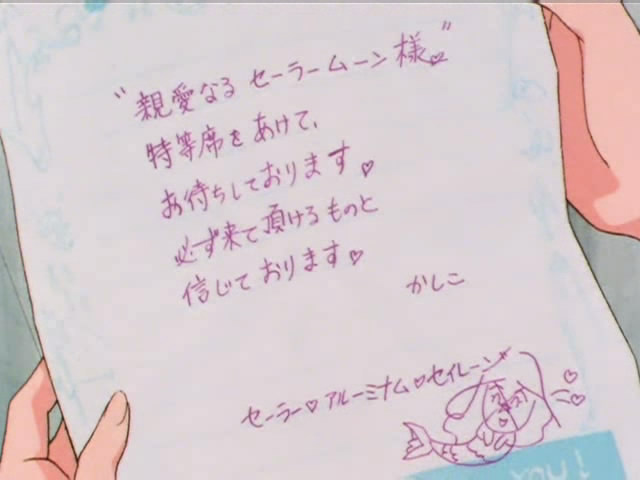 "親愛なる セーラームーン様♡"
特等席をあけて、
お待ちしております♡
必ず来て頂けるものと
信じております♡
かしこ
セーラー♡アルーミナム♡セイレーン
you!